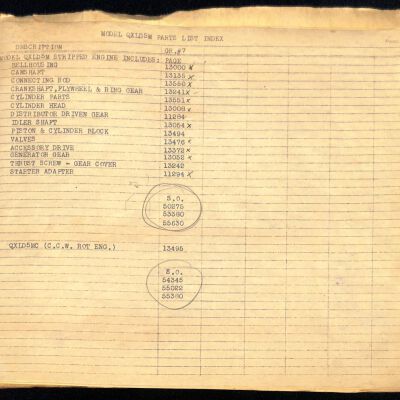 MODEL QXLD5M PARTS LIST INDEX
DESCRIPTION GR.#7
MODEL QXLD5M STRIPPED ENGINE INCLUDES: PAGE
BELLHOUSING 13000 x
CAMSHAFT 13135 x
CONNECTING ROD 13550 x
CRANKSHAFT, FLYWHEEL & RING GEAR 13241 x
CYLINDER PARTS 13551 x
CYLINDER HEAD 13008 x
DISTRIBUTOR DRIVEN GEAR 11284
IDLER SHAFT 13054 x
PISTON & CYLINDER BLOCK 13494
VALVES 13476 x
ACCESSORY DRIVE 13372 x
GENERATOR GEAR 13052 x
THRUST SCREW - GEAR COVER 13242
STARTER ADAPTER 11294 x
S.O.
50275
53380
55630
QXLD5MC (C.C.W. ROT ENG.) 13495
S.O.
54345
55022
55380